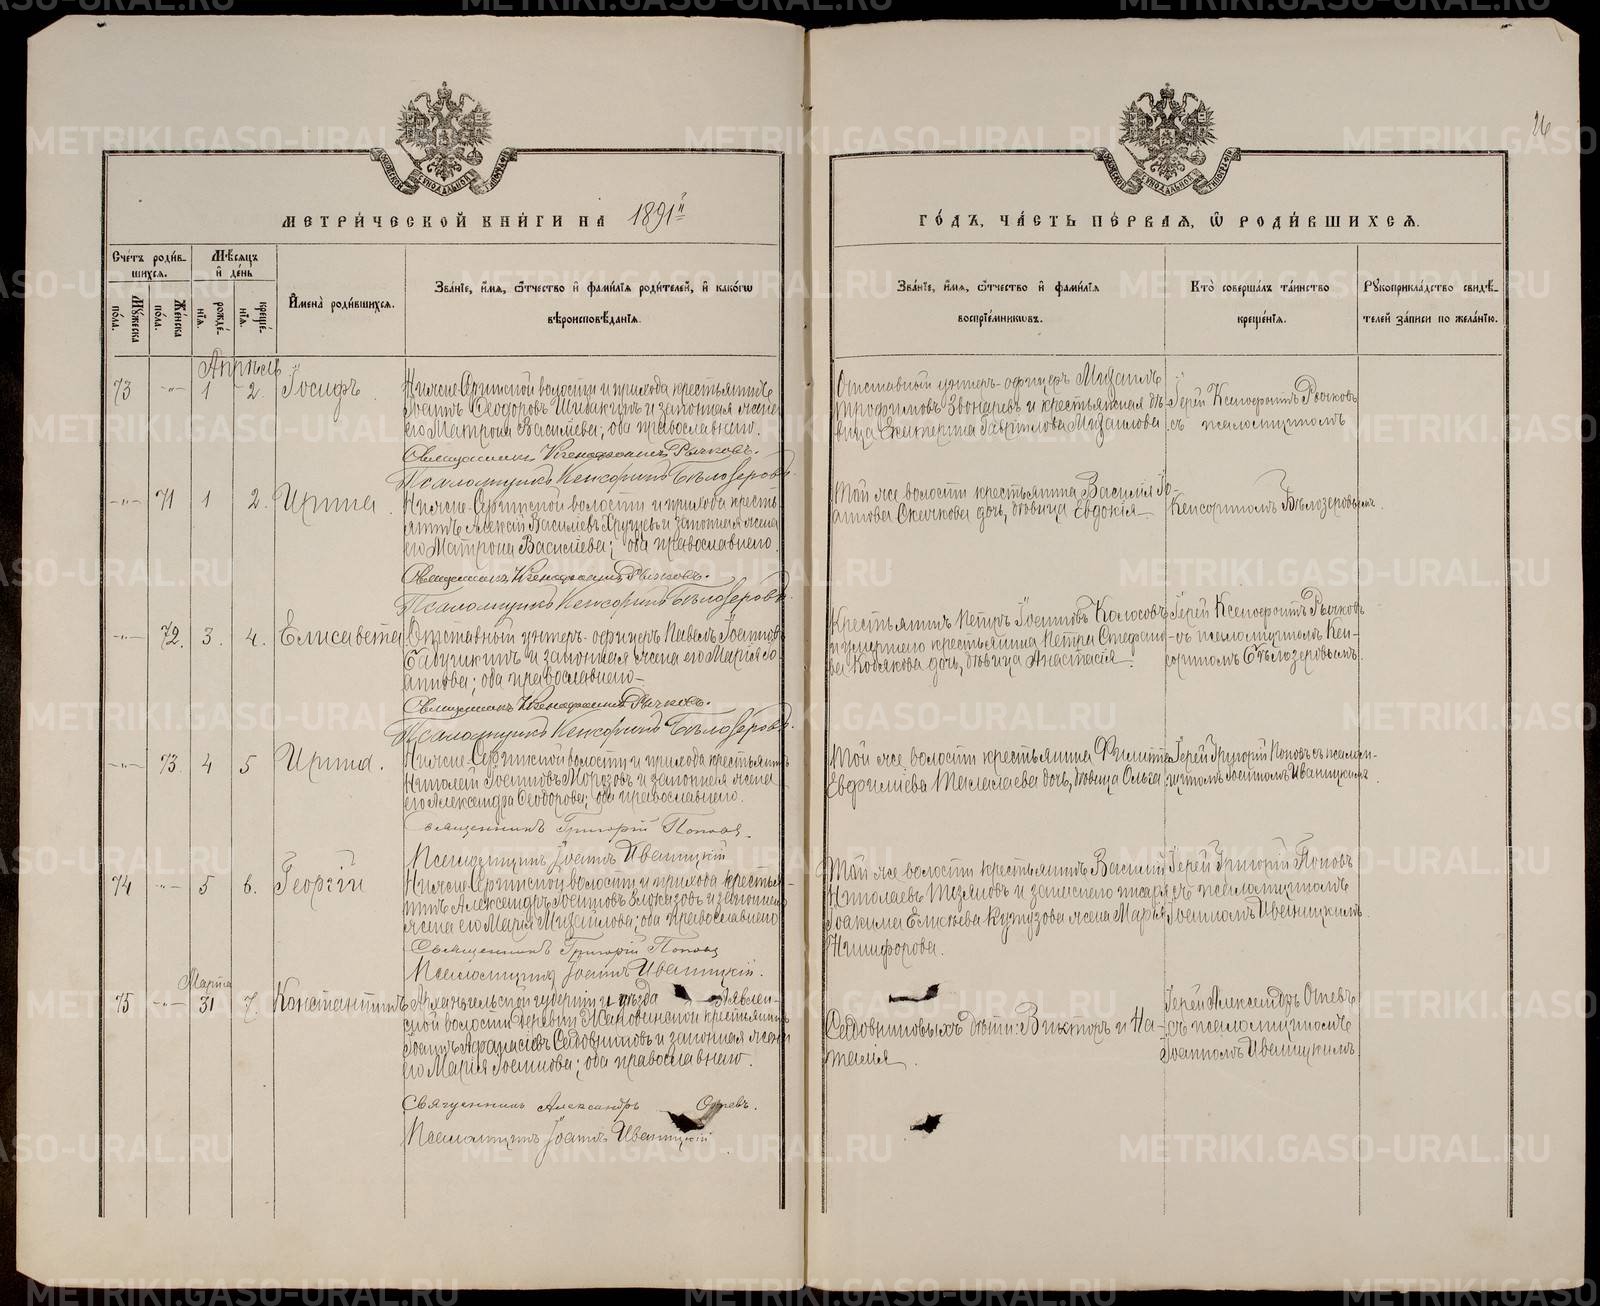 26
МЕТРИ́ЧЕСКОЙ КНИ́ГИ НА 1891й
ГО́ДЪ, ЧА́СТЬ ПЕ́РВАЯ, Ѽ РОДИ́ВШИХСЯ.
Счетъ роди́в-
шихся.
Му́жеска пола.
Же́нска пола.
Мѣ́сяцъ и҆ де́нь
рожде́-
нїя.
креще́-
нїя.
И҆мена̀ роди́вшихся.
Зва́нїе, и҆́мя, ѻ҆́тчество и҆ фами́лїя роди́телей, и҆ како́гѡ
вѣроисповѣ́данїя.
Зва́нїе, и҆́мя, ѻ҆́тчество и҆ фами́лїя
воспрїе́мникѡвъ.
Кто̀ соверша́лъ та́инство
креще́нїя.
Рꙋкоприкла́дство свидѣ́-
телей за́писи по жела́нїю.
Апрѣль
73 -"- 1 2. Іосифъ
Нижне-Сергинской волости и прихода крестьянинъ
Іоаннъ Ѳеодоровъ и законная жена
его Матрона Васильева; оба православнаго.
Священникъ Ксенофонтъ Рычковъ.
Псаломщикъ Кенсоринъ Бѣлозеровъ.
Отставный унтеръ-офицеръ Михаилъ
Трофимовъ Звонаревъ и крестьянская дѣ-
вица Екатерина Гаврилова Михаилова
Іерей Ксенофонтъ Рычковъ
съ псаломщикомъ
-"- 71 1 2. Ирина
Нижне-Сергинской волости и прихода кресть-
янинъ Алексѣй Васильевъ и законная жена
его Матрона Васильева; оба православнаго.
Священникъ Ксенофонтъ Рычковъ.
Псаломщикъ Кенсоринъ Бѣлозеровъ.
Той же волости крестьянина Василія Іо-
аннова дочь, дѣвица Евдокія
Кенсориномъ Бѣлозеровымъ.
-"- 72. 3. 4. Елисавета
Отставный унтеръ-офицеръ Павелъ Іоанновъ
Бабушкинъ и законная жена его Марія Іо-
аннова; оба православнаго
Священникъ Ксенофонтъ Рычковъ.
Псаломщикъ Кенсоринъ Бѣлозеровъ.
Крестьянинъ Петръ Іоанновъ Колосовъ
и умершаго крестьянина Петра Стефано-
ва Кобякова дочь, дѣвица Анастасія
Іерей Ксенофонтъ Рычковъ
съ псаломщикомъ Кен-
сориномъ Бѣлозеровымъ
-"- 73. 4 5 Ирина.
Нижне-Сергинской волости и прихода крестьянинъ
Николай Іоанновъ Морозовъ и законная жена
его Александра Ѳеодорова; оба православнаго.
Священникъ Григорій Поповъ.
Псаломщикъ Іоаннъ Иваницкій
Той же волости крестьянина Филиппа
дочь, дѣвица Ольга
Іерей Григорій Поповъ съ псалом-
щикомъ Іоанномъ Иваницкимъ.
74 -"- 5 6. Георгій
Нижне-Сергинской волости и прихода крестья-
нинъ Александръ Іоанновъ Злоказовъ и законная
жена его Марія Михаилова; оба православнаго
Священникъ Григорій Поповъ
Псаломщикъ Іоаннъ Иваницкій.
Той же волости крестьянинъ Василій
Николаевъ и запаснаго писаря
Іоакима Кутузова жена Марія
Никифорова.
Іерей Григорій Поповъ
съ псаломщикомъ
Іоанномъ Иваницкимъ.
Марта
75 -"- 31 7. Константинъ
Архангельской губерніи и уѣзда
ской волости деревни крестьянинъ
Іоаннъ Аѳанасіевъ Садовниковъ и законная жена
его Марія Іоаннова; оба православнаго.
Священникъ Александръ
Псаломщикъ Іоаннъ Иваницкій.
Садовниковыхъ дѣти: Викторъ и На-
талія.
Іерей Александръ
съ псаломщикомъ
Іоанномъ Иваницкимъ.
METRIKI.GASO-URAL.RU